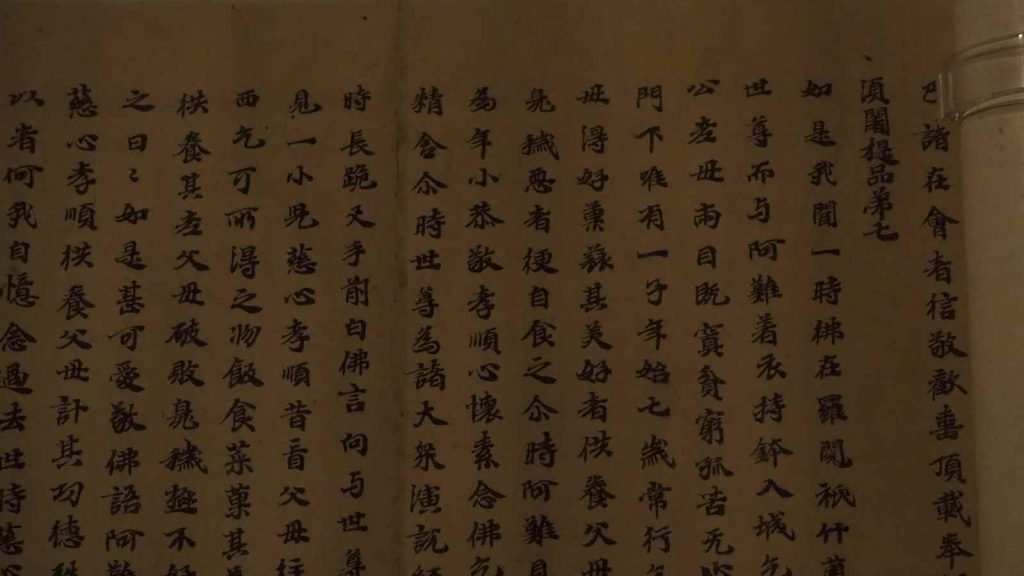 巳諸在會者信敬歡喜頂載奉
須闍提品弟七
如是我聞一時佛在羅閱祇竹
世尊而与阿難著衣持鉢入城乞
公老母兩目既冥貧窮孤苦无
門下唯有一子年始七歲常行乞
母得好菓蓏其美好者供養父母
臭穢惡者便自食之尒時阿難見
為年小恭敬孝順心懷素念佛乞
精舍尒時世尊為諸大衆演說
時長跪叉手前白佛言向与世尊
見一小兒慈心孝順昔盲父母住
西乞可所得之物飯食菜菓其
供養其老父母破敗臭穢極不好
之日〻如是甚可愛敬佛語阿難
慈心孝順供養父母計其功德
以者何我自憶念過去世時慈心